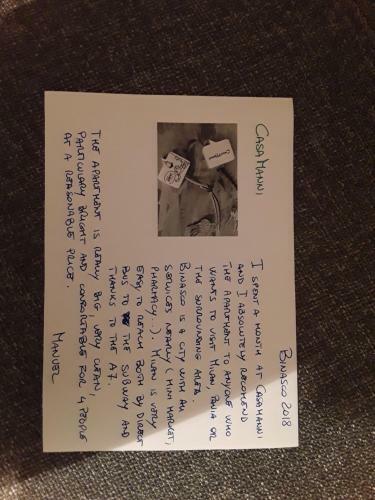 BINASCO 2018
CASA MANNI
I SPENT A MONTH AT CASAMANNI
AND I ABSOLUTELY RECOMEND
THE APARTMENT TO ANYONE WHO
WANTS TO VISIT MILAN PAVIA OR
THE SURROUNDING AREA.
BINASCO IS A CITY WITH ALL
SERVICES NEARLY (MINI MARKET,
PHARMACY..) MILAN IS VERY
EASY TO REACH BOTH BY DIRECT
BUS TO THE SUBWAY AND
THANKS TO THE A7.
THE APARTMENT IS REALLY BIG, VERY CLEAN,
PARTICULARY BRIGHT AND CONFORTABLE FOR 4 PEOPLE
AT A REASONABLE PRICE.
MANUEL